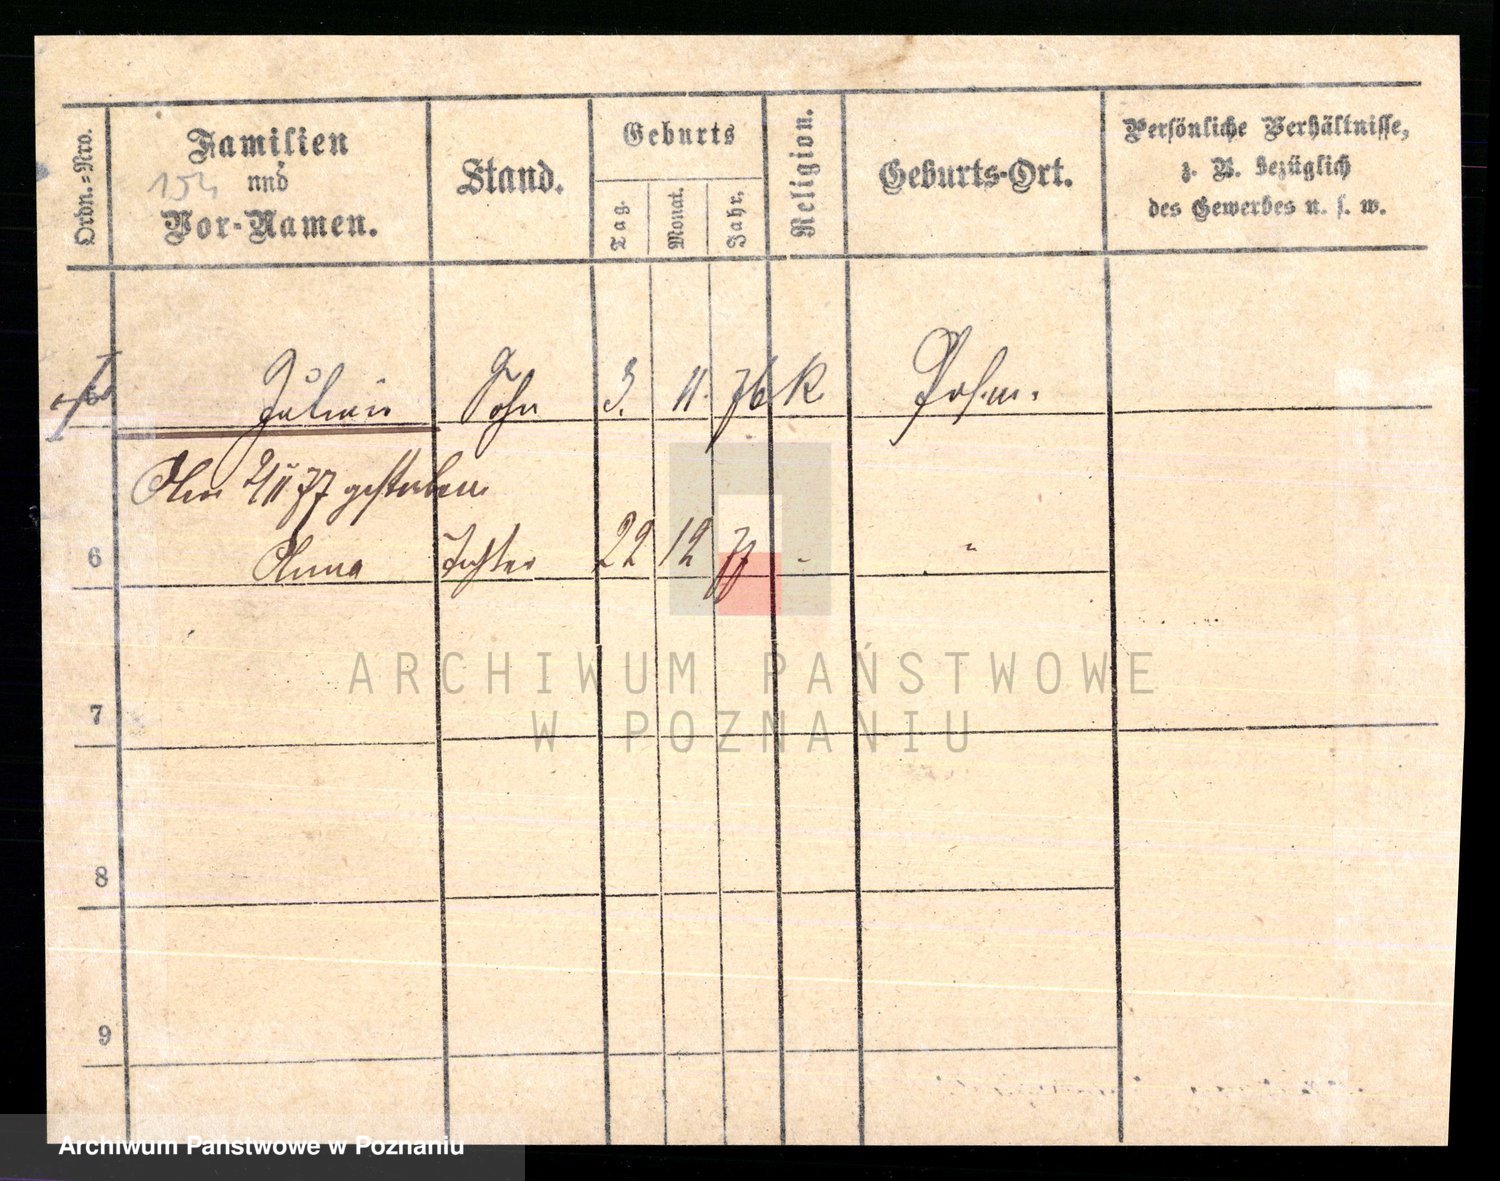 Ordn.=Nro.
Familien
und
154
Vor-Namen.
Stand.
Geburts
Tag.
Monat.
Jahr.
Religion.
Geburts-Ort.
Persönliche Verhältnisse,
z. B. bezüglich
des Gewerbes u. s. w.
Julian Sohn 3. 11. 76 K. Posen.
Am 2/II 77 gestorben
6 Anna Tochter 22 12 77 - "
7
8
9
ARCHIWUM PAŃSTWOWE
W POZNANIU
Archiwum Państwowe w Poznaniu